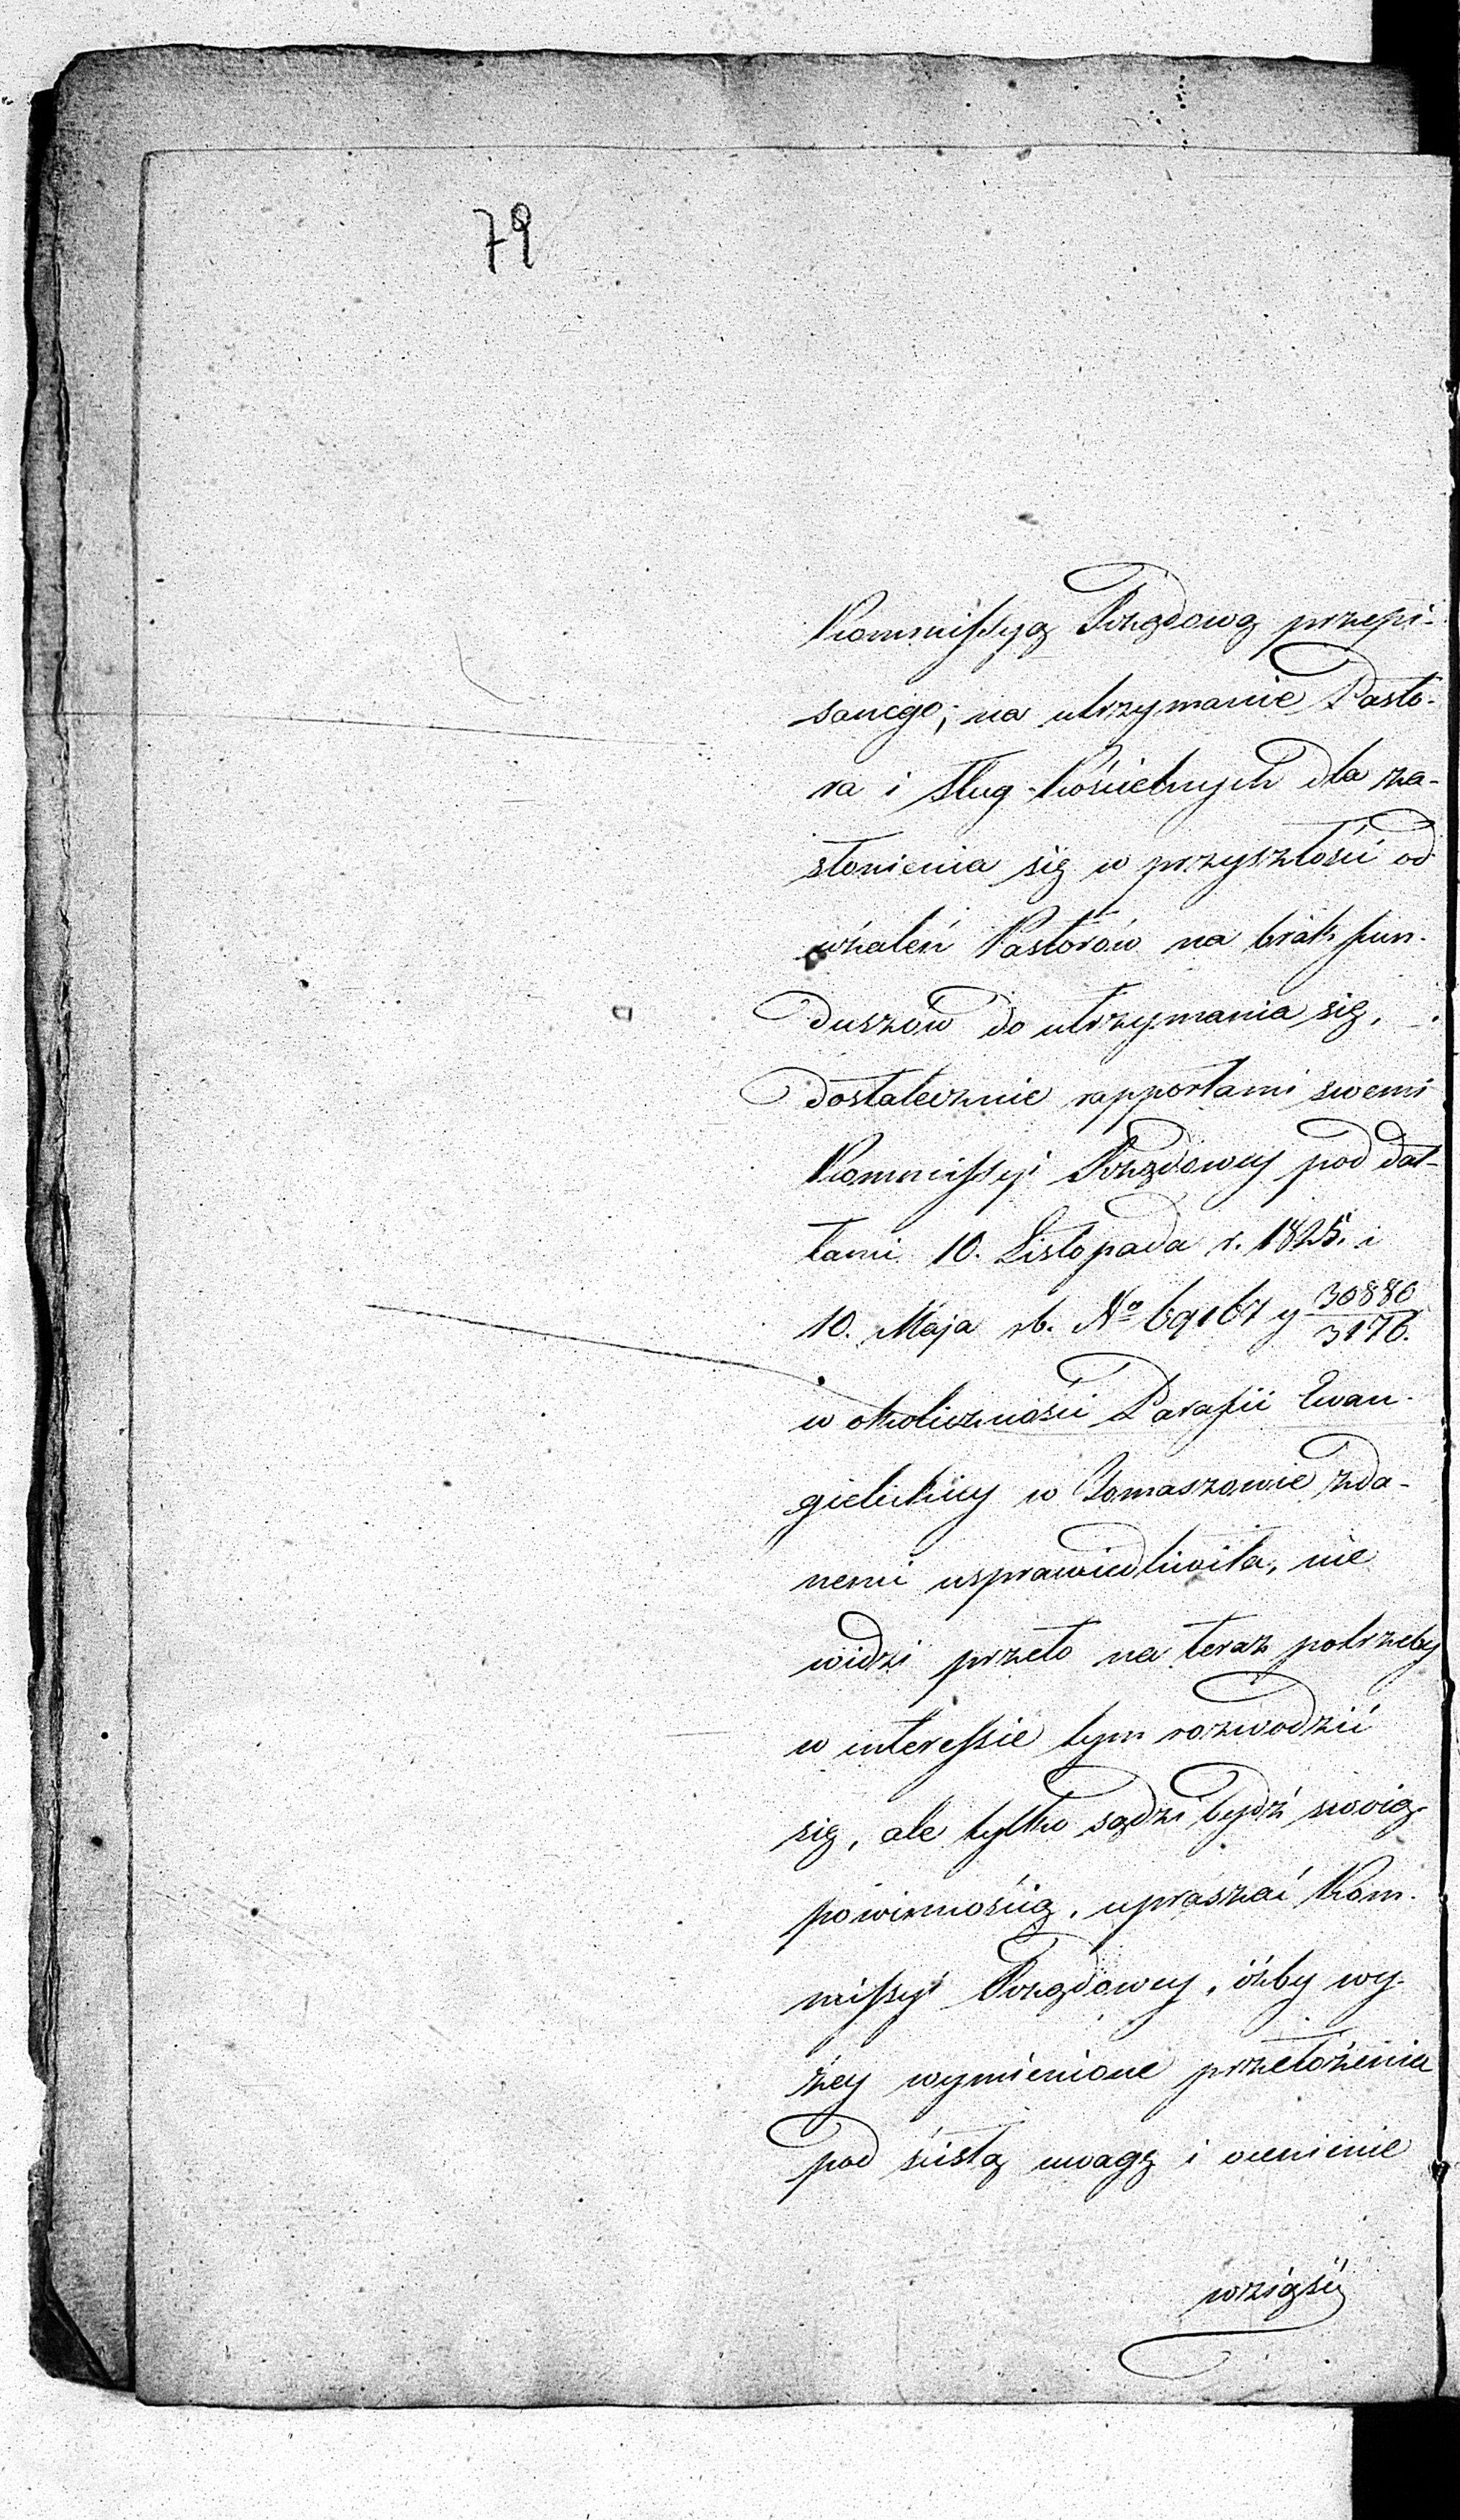 79
Kommissyą Rządową przepi-
sanego; na utrzymanie Pasto-
ra i sług Kościelnych dla za-
słonienia się w przyszłości od
użaleń Pastorów na brak fun-
duszów do utrzymania się,
dostatecznie rapportami swemi
Kommissyi Rządowey pod dat-
tami 10. Listopada r. 1825. i
10. Maja rb. No 69167 y 30880/3176.
w okoliczności Parafii Ewan-
gielickiey w Tomaszowie zda-
nemi usprawiedliwiła, nie
widzi przeto na teraz potrzeby
w interessie tym rozwodzić
się, ale tylko sądzi bydź swoią
powinnością, upraszać Kom-
missyi Rządowey, iżby wy-
żey wymienione przełożenia
pod ścisłą uwagę i ocenienie
wziąść